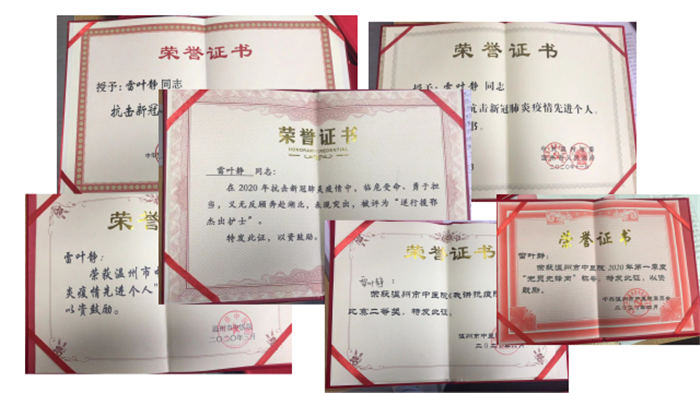 荣誉证书
授予：雷叶静 同志
抗击新冠
荣誉证书
授予：雷叶静 同志
抗击新冠肺炎疫情先进个人。
书。
中共温州市委
二〇二〇年
荣誉证书
HONORARY CREDENTIAL
雷叶静 同志：
在2020年抗击新冠肺炎疫情中，临危受命、勇于担
当，义无反顾奔赴湖北，表现突出，被评为“逆行援鄂
杰出护士”。
特发此证，以资鼓励。
荣誉
雷叶静：
荣获温州市中
炎疫情先进个人”
以资鼓励。
二〇二〇年三月
荣誉证书
雷叶静：
荣获温州市中医院
比赛二等奖，特发此证。
温州市中医
荣誉证书
雷叶静：
荣获温州市中医院2020年第一季度
“党员先锋岗”称号，特发此证，以资
鼓励。